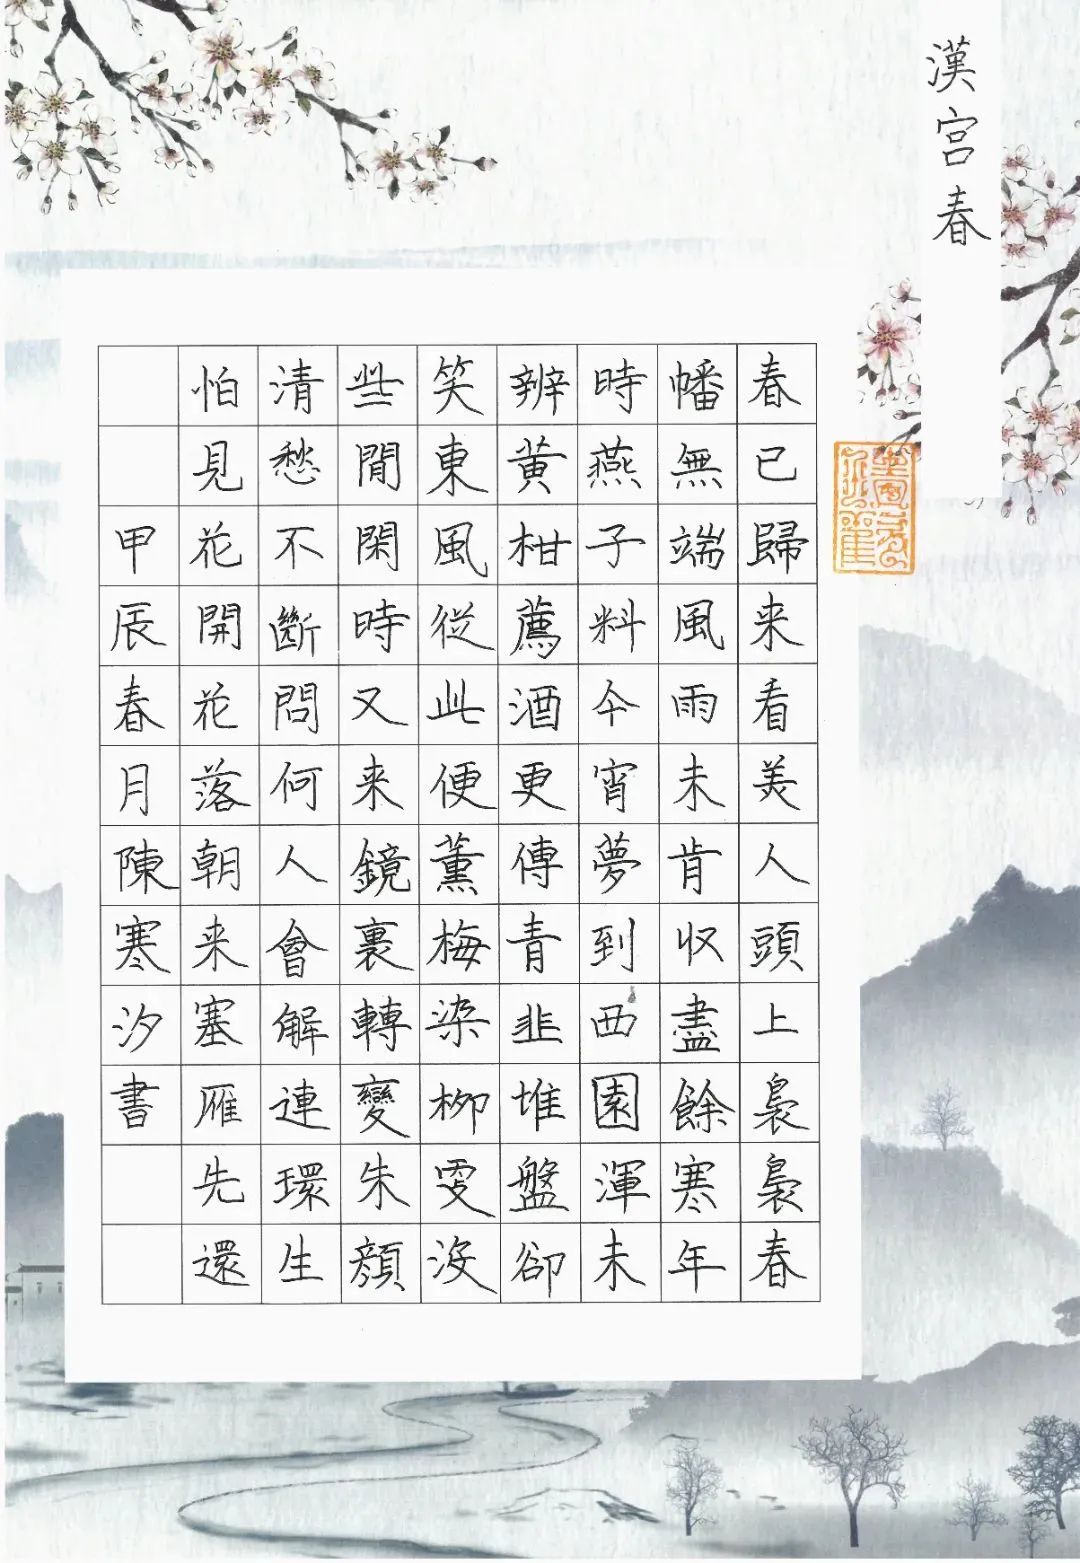 漢宮春
春已歸来看美人頭上裊裊春
幡無端風雨未肯收盡餘寒年
時燕子料今宵夢到西園渾未
辨黃柑薦酒更傳青韭堆盤卻
笑東風從此便薰梅染柳更沒
些閒閑時又来鏡裏轉變朱顏
清愁不斷問何人會解連環生
怕見花開花落朝来塞雁先還
甲辰春月陳寒汐書